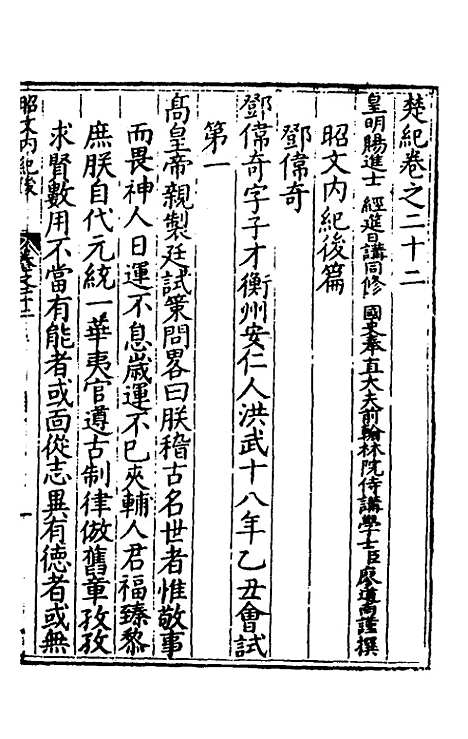 楚紀卷之二十二
皇明賜進士 經筵日講同修 國史奉直大夫前翰林院侍講學士臣廖道南謹撰
昭文內紀後篇
鄧偉奇
鄧偉奇字子才衡州安仁人洪武十八年乙丑會試
第一
高皇帝親製廷試策問畧曰朕稽古名世者惟敬事
而畏神人日運不息歲運不已夾輔人君福臻黎
庶朕自代元統一華夷官遵古制律倣舊章孜孜
求賢數用不當有能者或面從志異有德者或無
昭文內紀後
卷之二十二
一